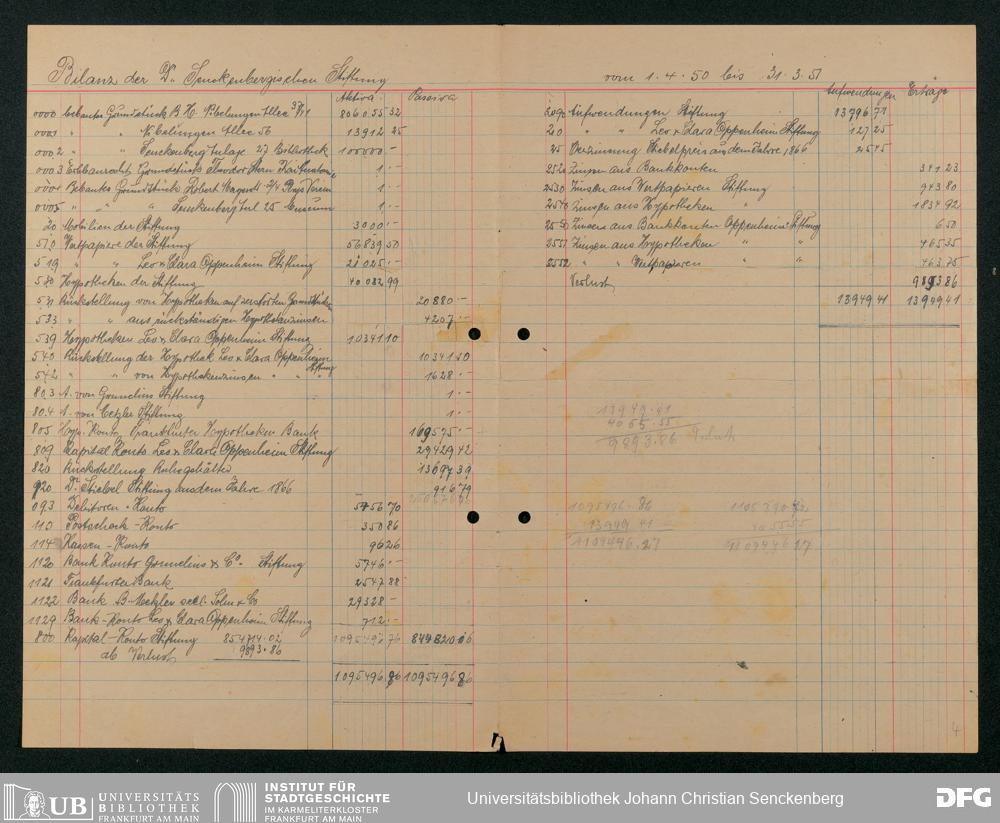 Bilanz der Dr. Senckenbergischen Stiftung vom 1.4.50 bis 31.3.51
Aktiva Passiva
0000 Bebautes Grundstück B.H. Nibelungen Allee 37/41 806055 32
0001 " " Nibelungen Allee 56 13912 25
0002 " " Senckenberg Anlage 27 Bibliothek 100000.-
0003 Erbbaurecht Grundstück Theodor Stern 1.-
0004 Bebautes Grundstück Robert Mayerst 2/4 Phys. Verein 1.-
0005 " " " Senckenberg Anl 25 Museum 1.-
20 Mobilien der Stiftung 3000.-
510 Wertpapiere der Stiftung 56839 50
519 " " Leo & Clara Oppenheim Stiftung 21025.-
530 Hypotheken der Stiftung 40032 99
531 Rückstellung von Hypotheken auf zerstörten Grundstücken 20880.-
533 " " aus rückständigen Hypothekenzinsen 4207.-
539 Hypotheken Leo & Clara Oppenheim Stiftung 10341 10
540 Rückstellung der Hypothek Leo & Clara Oppenheim Stiftung 10341 10
542 " " von Hypothekenzinsen " " " 1628.-
803 A. von Gwinner Stiftung 1.-
804 A. von Metzler Stiftung 1.-
805 Hyp. Konto Frankfurter Hypotheken Bank 169575.-
809 Kapital Konto Leo & Clara Oppenheim Stiftung 29429 42
820 Rückstellung Ruhegehälter 13697 39
920 Dr. Stiebel Stiftung aus dem Jahre 1866 916 79
093 Debitoren-Konto 5756 70
110 Postscheck-Konto 350 86
114 Kassen-Konto 96 26
1120 Bank Konto Grunelius & Co. Stiftung 5746.-
1121 Frankfurter Bank 2547 88
1122 Bank B. Metzler seel. Sohn & Co 29328.-
1129 Bank-Konto Leo & Clara Oppenheim Stiftung 712.-
800 Kapital-Konto Stiftung 854714.02 844820 16
ab Verlust 9893.86
1095496 86 1095496 86
Aufwendungen Erträge
2090 Aufwendungen Stiftung 13796 71
20 " " Leo & Clara Oppenheim Stiftung 127 25
25 Verzinsung Stiebelpreis aus dem Jahre 1866 25 45
2520 Zinsen aus Bankkonten 341 23
2530 Zinsen aus Wertpapieren Stiftung 943 80
2540 Zinsen aus Hypotheken " 1834 92
2550 Zinsen aus Bankkonten Oppenheim Stiftung 6 50
2551 Zinsen aus Hypotheken " " 465 35
2552 " " Wertpapieren " " 463 75
Verlust 9893 86
13949 41 13949 41
13949.41
4055.55
9893.86 Verlust
1095496.86
13949 41
1109446.27 1109446 27
4
UB UNIVERSITÄTS
BIBLIOTHEK
FRANKFURT AM MAIN
INSTITUT FÜR
STADTGESCHICHTE
IM KARMELITERKLOSTER
FRANKFURT AM MAIN
Universitätsbibliothek Johann Christian Senckenberg
DFG